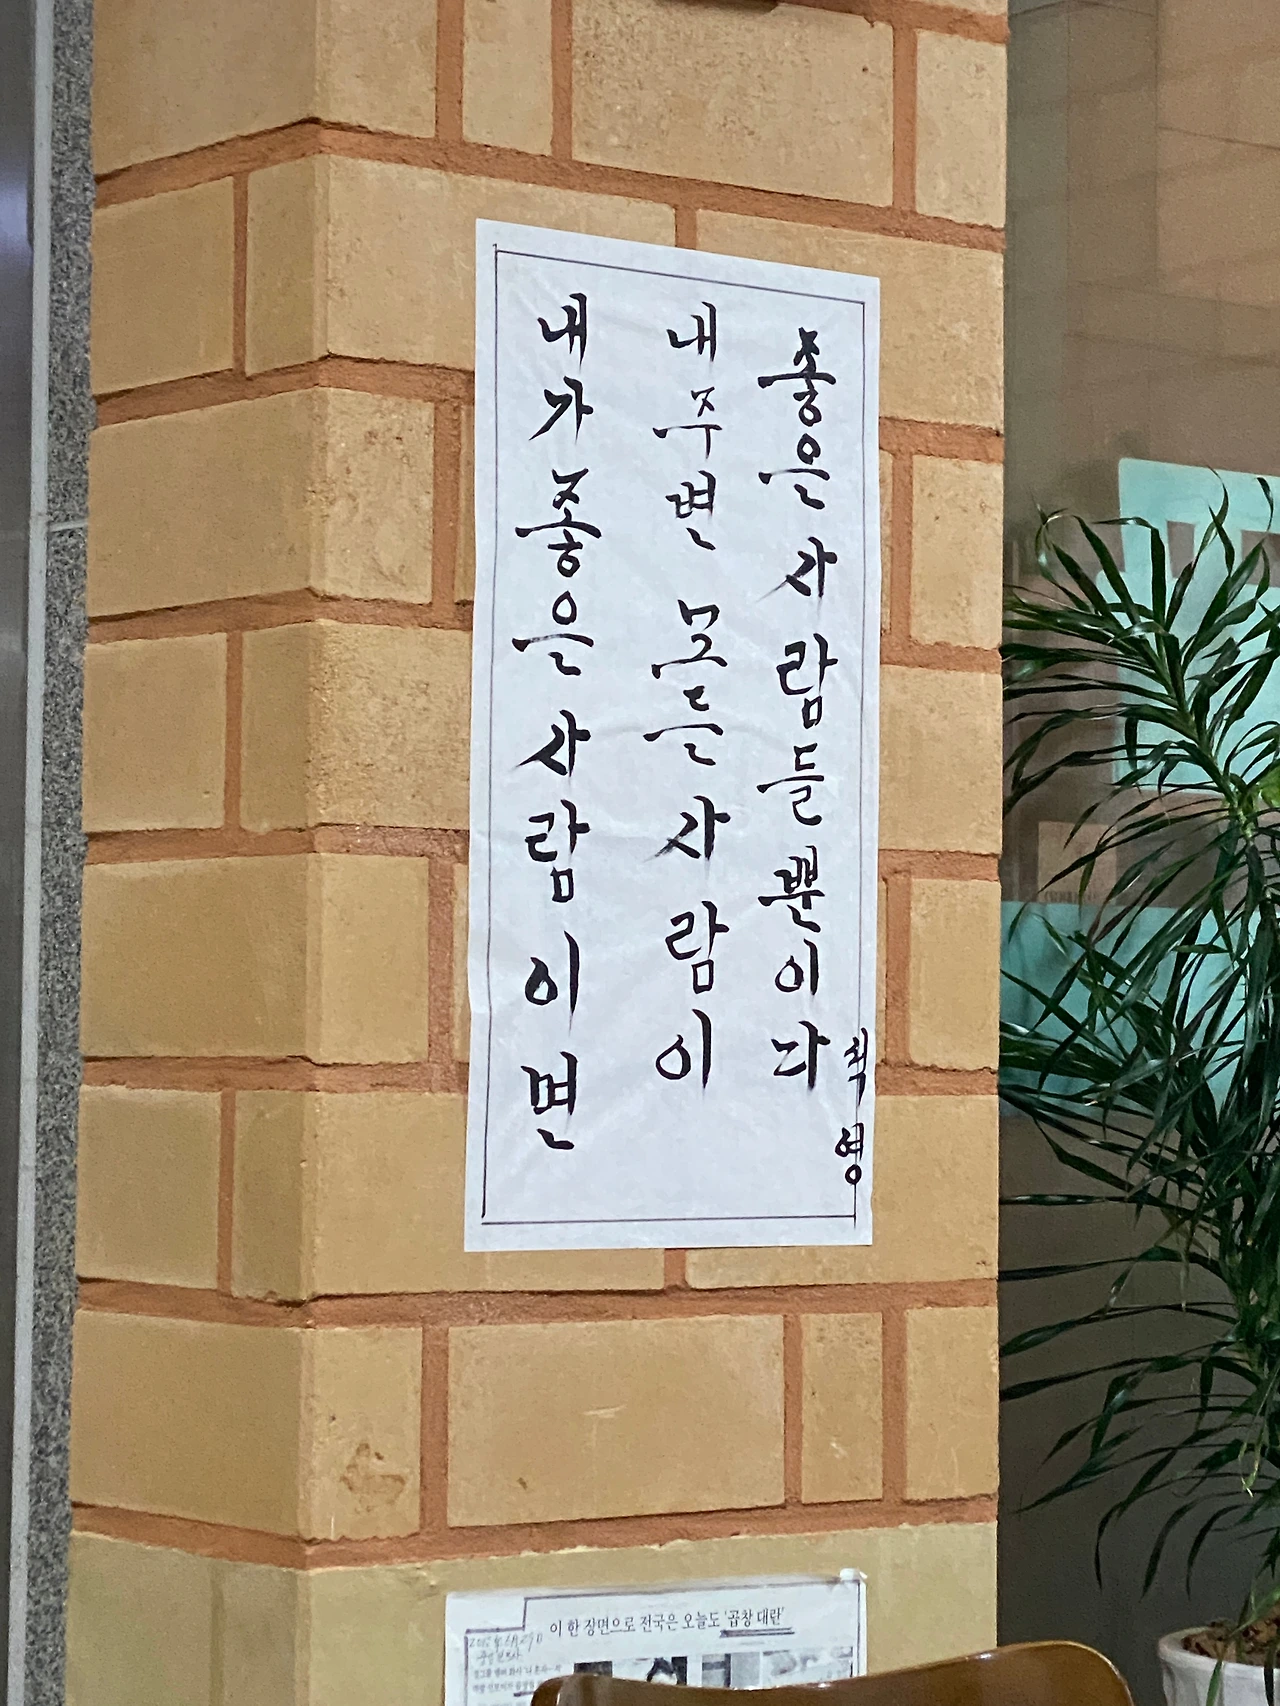 내가 좋은 사람이면
내 주변 모든 사람이
좋은 사람들 뿐이다
이 한 장면으로 전국은 오늘도 '곱창 대란'